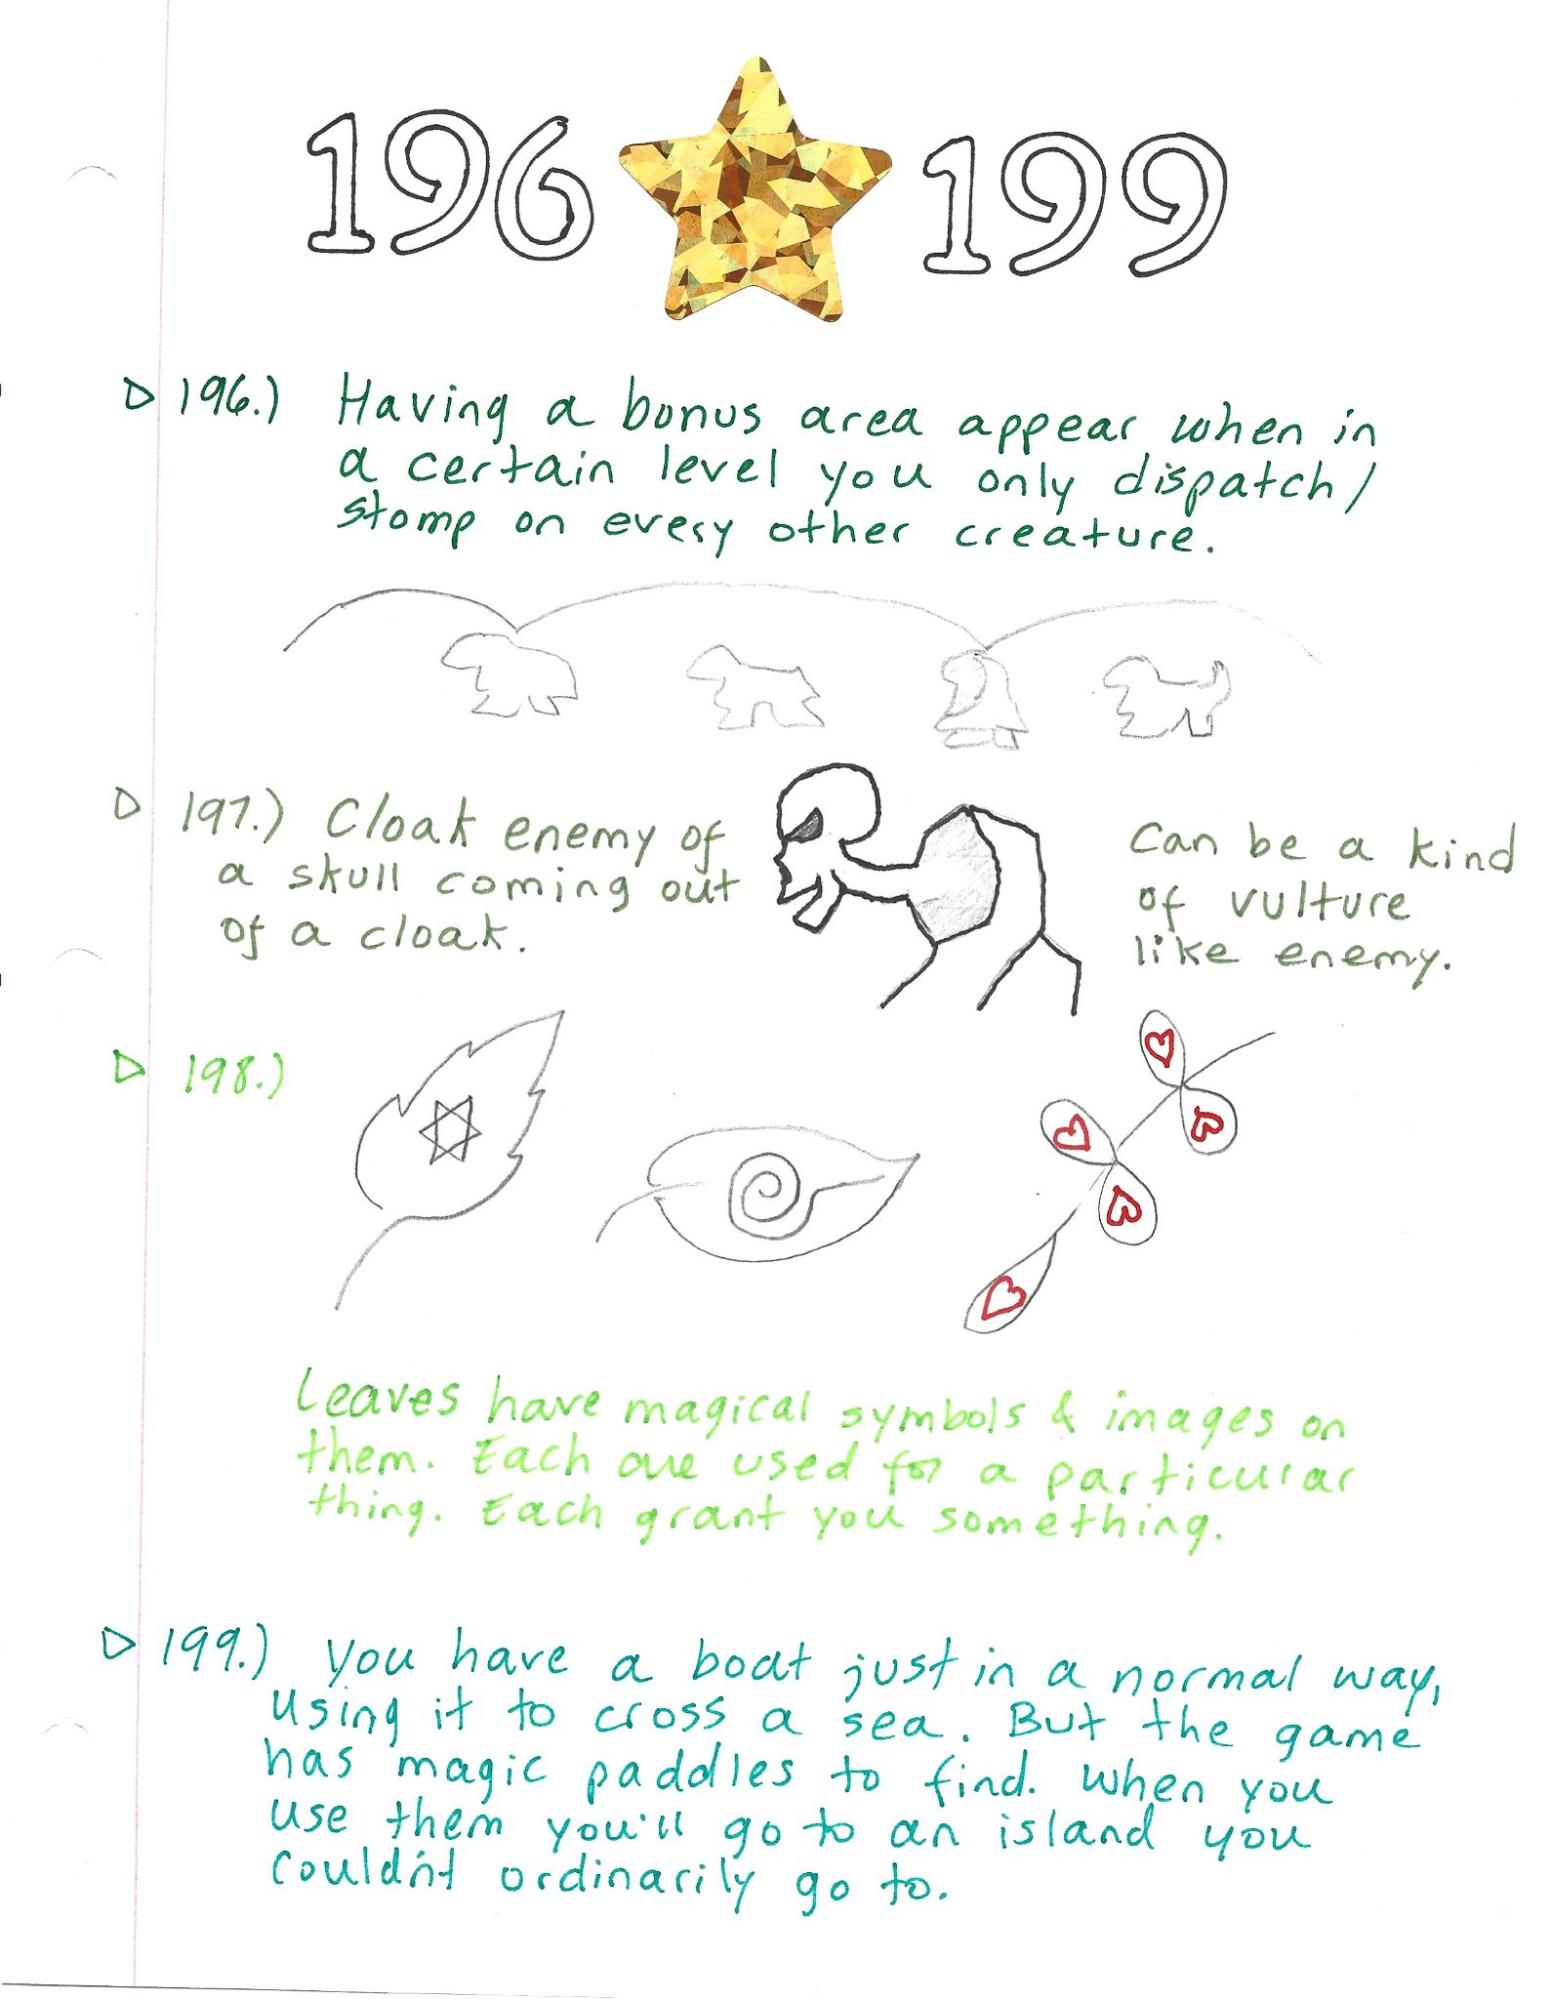 196 199
196.) Having a bonus area appear when in
a certain level you only dispatch/
stomp on every other creature.
197.) Cloak enemy of
a skull coming out
of a cloak.
Can be a kind
of vulture
like enemy.
198.)
Leaves have magical symbols & images on
them. Each one used for a particular
thing. Each grant you something.
199.) You have a boat just in a normal way,
using it to cross a sea. But the game
has magic paddles to find. When you
use them you'll go to an island you
couldn't ordinarily go to.